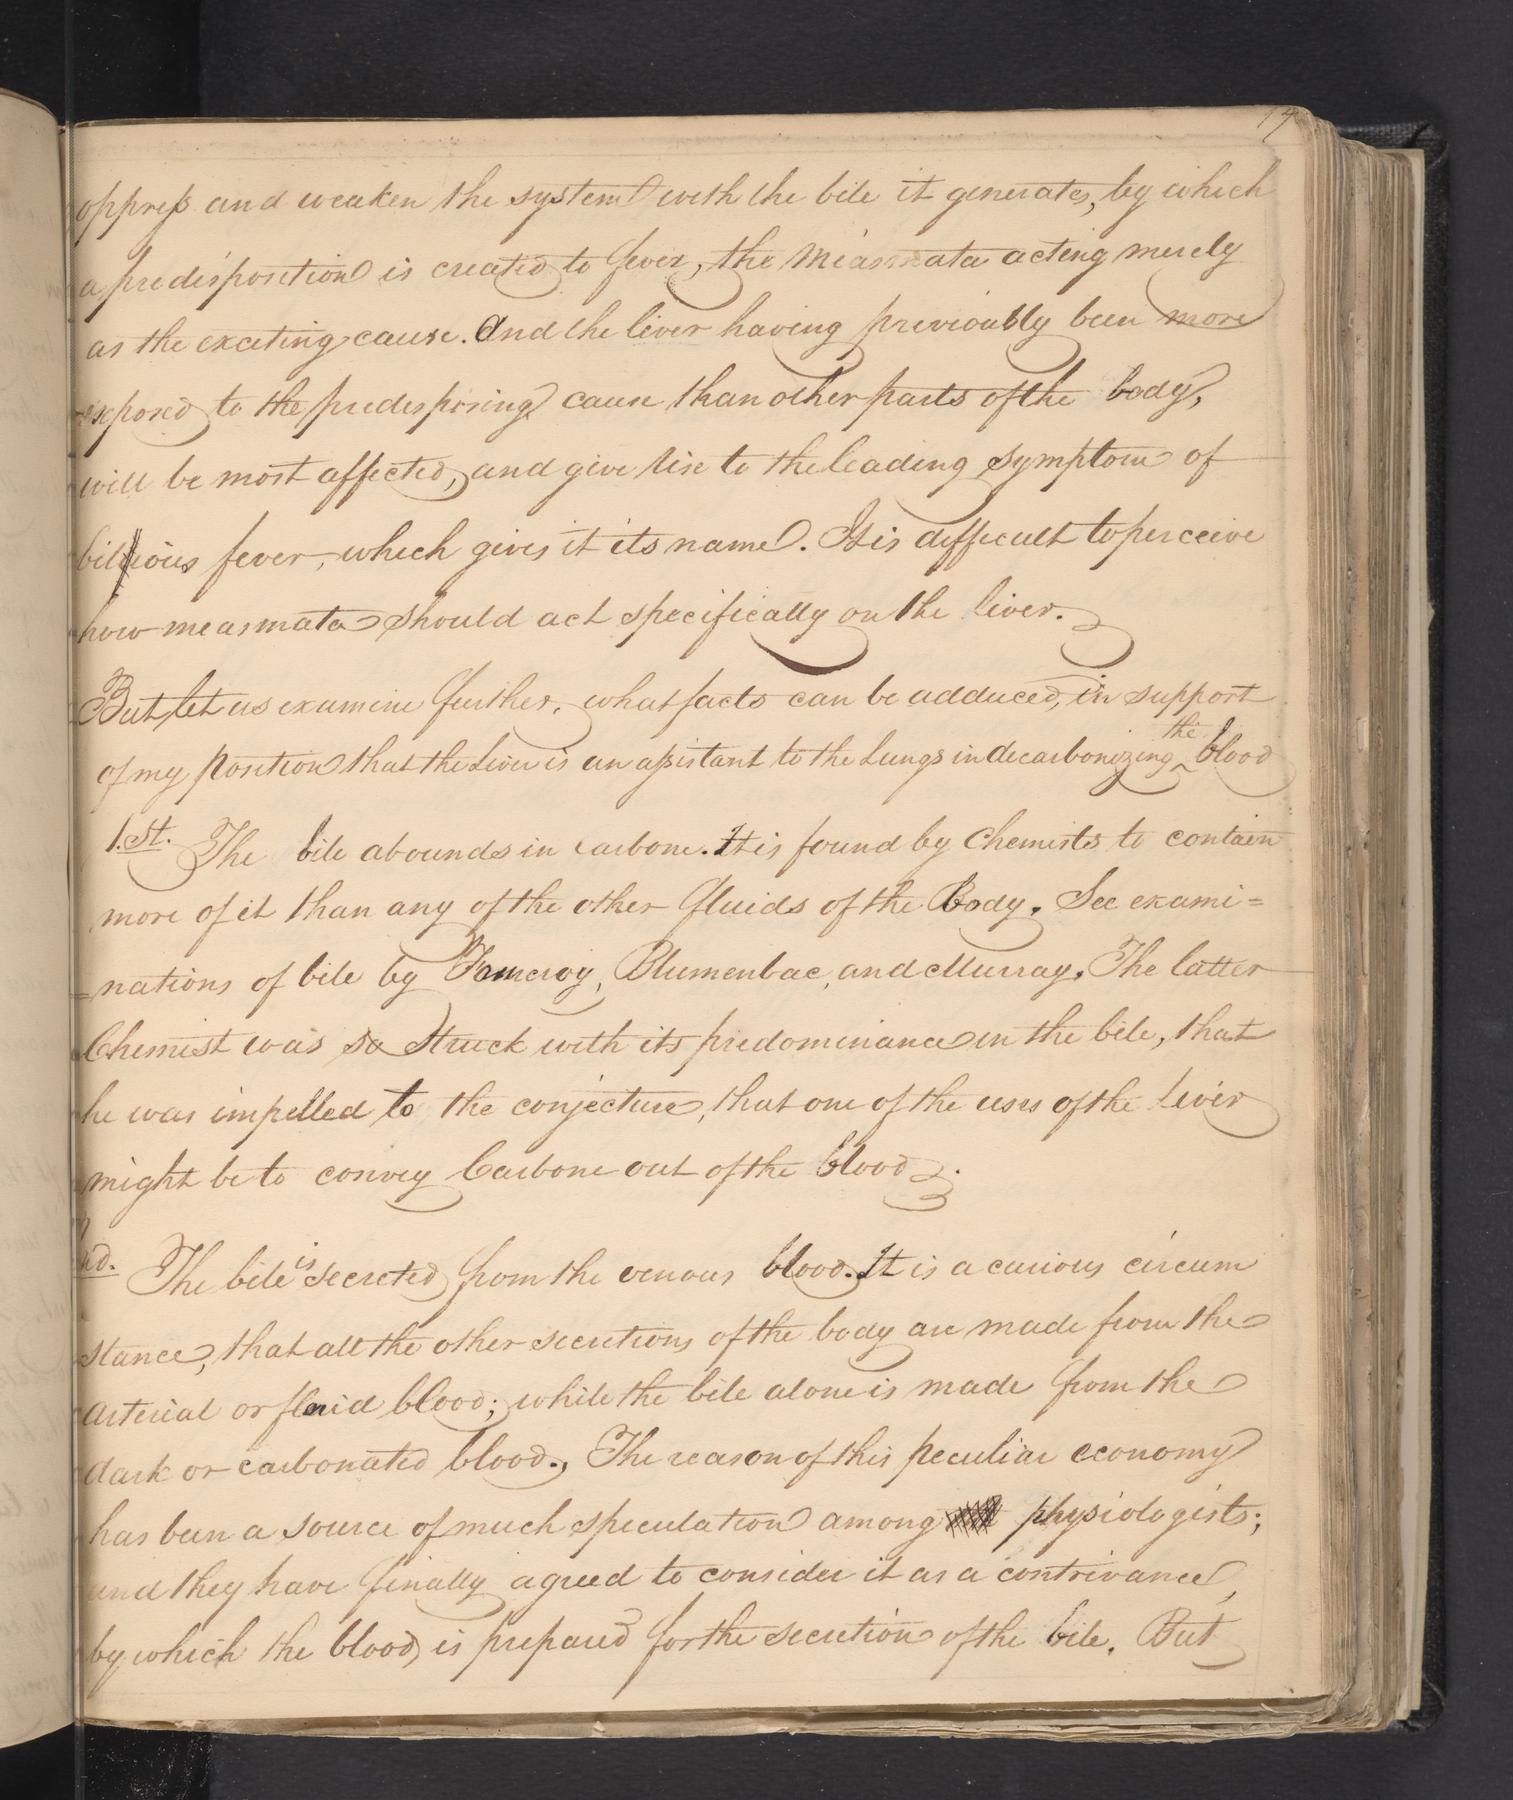 14
oppress and weaken the system with the bile it generates, by which
a predisposition is created to fever, the Miasmata acting merely
as the exciting cause. And the liver having previously been more
exposed to the predisposing cause than other parts of the body,
will be most affected, and give rise to the leading symptom of
billious fever, which gives it its name. It is difficult to perceive
how measmata should act specifically on the liver.
But let us examine further, what facts can be adduced, in support
of my position that the Liver is an assistant to the Lungs in decarbonizing the blood
1.st. The bile abounds in carbone. It is found by Chemists to contain
more of it than any of the other fluids of the Body. See exami=
=nations of bile by Fourcroy, Blumenbac, and Murray. The latter
Chemist was so struck with its predominance in the bile, that
he was impelled to the conjecture, that one of the uses of the liver
might be to convey Carbone out of the blood.
nd. The bile is secreted from the venous blood. It is a curious circum
stance, that all the other secretions of the body are made from the
Arterial or florid blood; while the bile alone is made from the
dark or carbonated blood. The reason of this peculiar economy
has been a source of much speculation among physiologists;
and they have finally agreed to consider it as a contrivance,
by which the blood, is prepared for the secretion of the bile. But